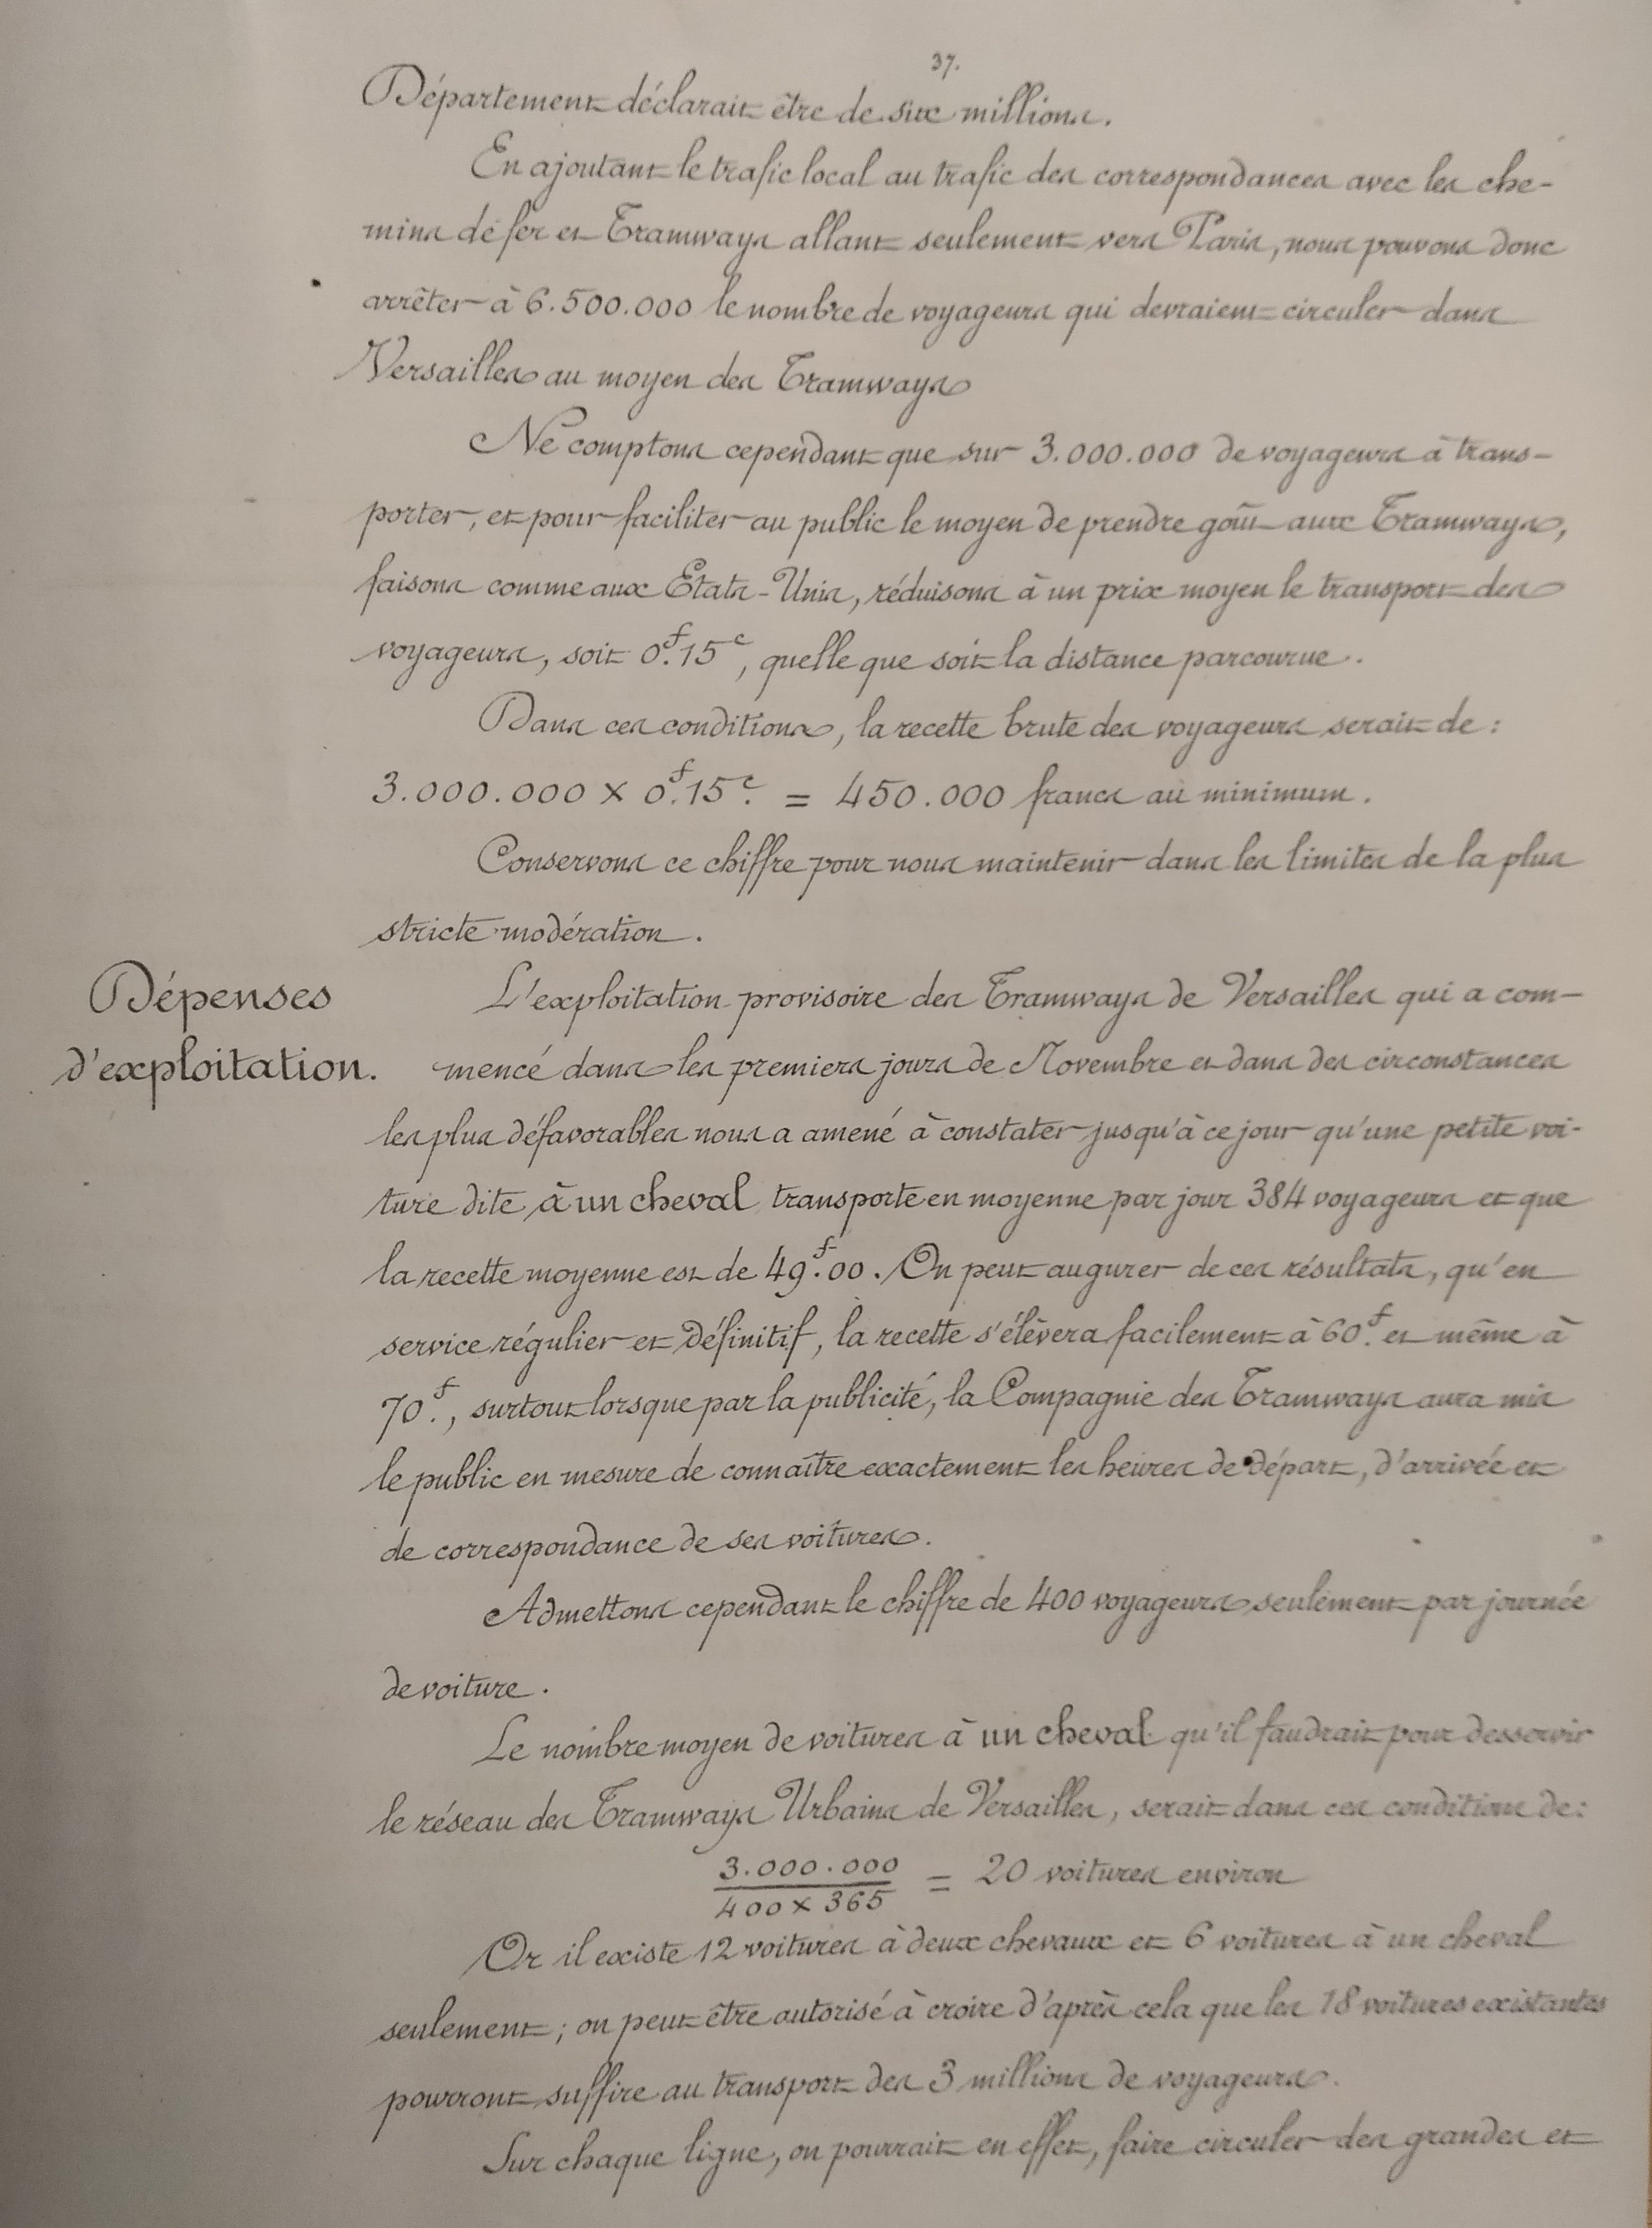 37.
Département déclarait être de six millions.
En ajoutant le trafic local au trafic des correspondances avec les che-
mins de fer et Tramways allant seulement vers Paris, nous pouvons donc
arrêter à 6.500.000 le nombre de voyageurs qui devraient circuler dans
Versailles au moyen des Tramways
Ne comptons cependant que sur 3.000.000 de voyageurs à trans-
porter, et pour faciliter au public le moyen de prendre goût aux Tramways,
faisons comme aux Etats-Unis, réduisons à un prix moyen le transport des
voyageurs, soit 0f.15c, quelle que soit la distance parcourue.
Dans ces conditions, la recette brute des voyageurs serait de :
3.000.000 x 0f.15c. = 450.000 francs au minimum.
Conservons ce chiffre pour nous maintenir dans les limites de la plus
stricte modération.
Dépenses
d'exploitation.
L'exploitation provisoire des Tramways de Versailles qui a com-
mencé dans les premiers jours de Novembre et dans des circonstances
les plus défavorables nous a amené à constater jusqu'à ce jour qu'une petite voi-
ture dite à un cheval transporte en moyenne par jour 384 voyageurs et que
la recette moyenne est de 49f.00. On peut augurer de ces résultats, qu'en
service régulier et définitif, la recette s'élèvera facilement à 60f. et même à
70f., surtout lorsque par la publicité, la Compagnie des Tramways aura mis
le public en mesure de connaître exactement les heures de départ, d'arrivée et
de correspondance de ses voitures.
Admettons cependant le chiffre de 400 voyageurs seulement par journée
de voiture.
Le nombre moyen de voitures à un cheval qu'il faudrait pour desservir
le réseau des Tramways Urbains de Versailles, serait dans ces conditions de :
3.000.000 / 400 x 365 = 20 voitures environ
Or il existe 12 voitures à deux chevaux et 6 voitures à un cheval
seulement ; on peut être autorisé à croire d'après cela que les 18 voitures existantes
pourront suffire au transport des 3 millions de voyageurs.
Sur chaque ligne, on pourrait en effet, faire circuler des grandes et